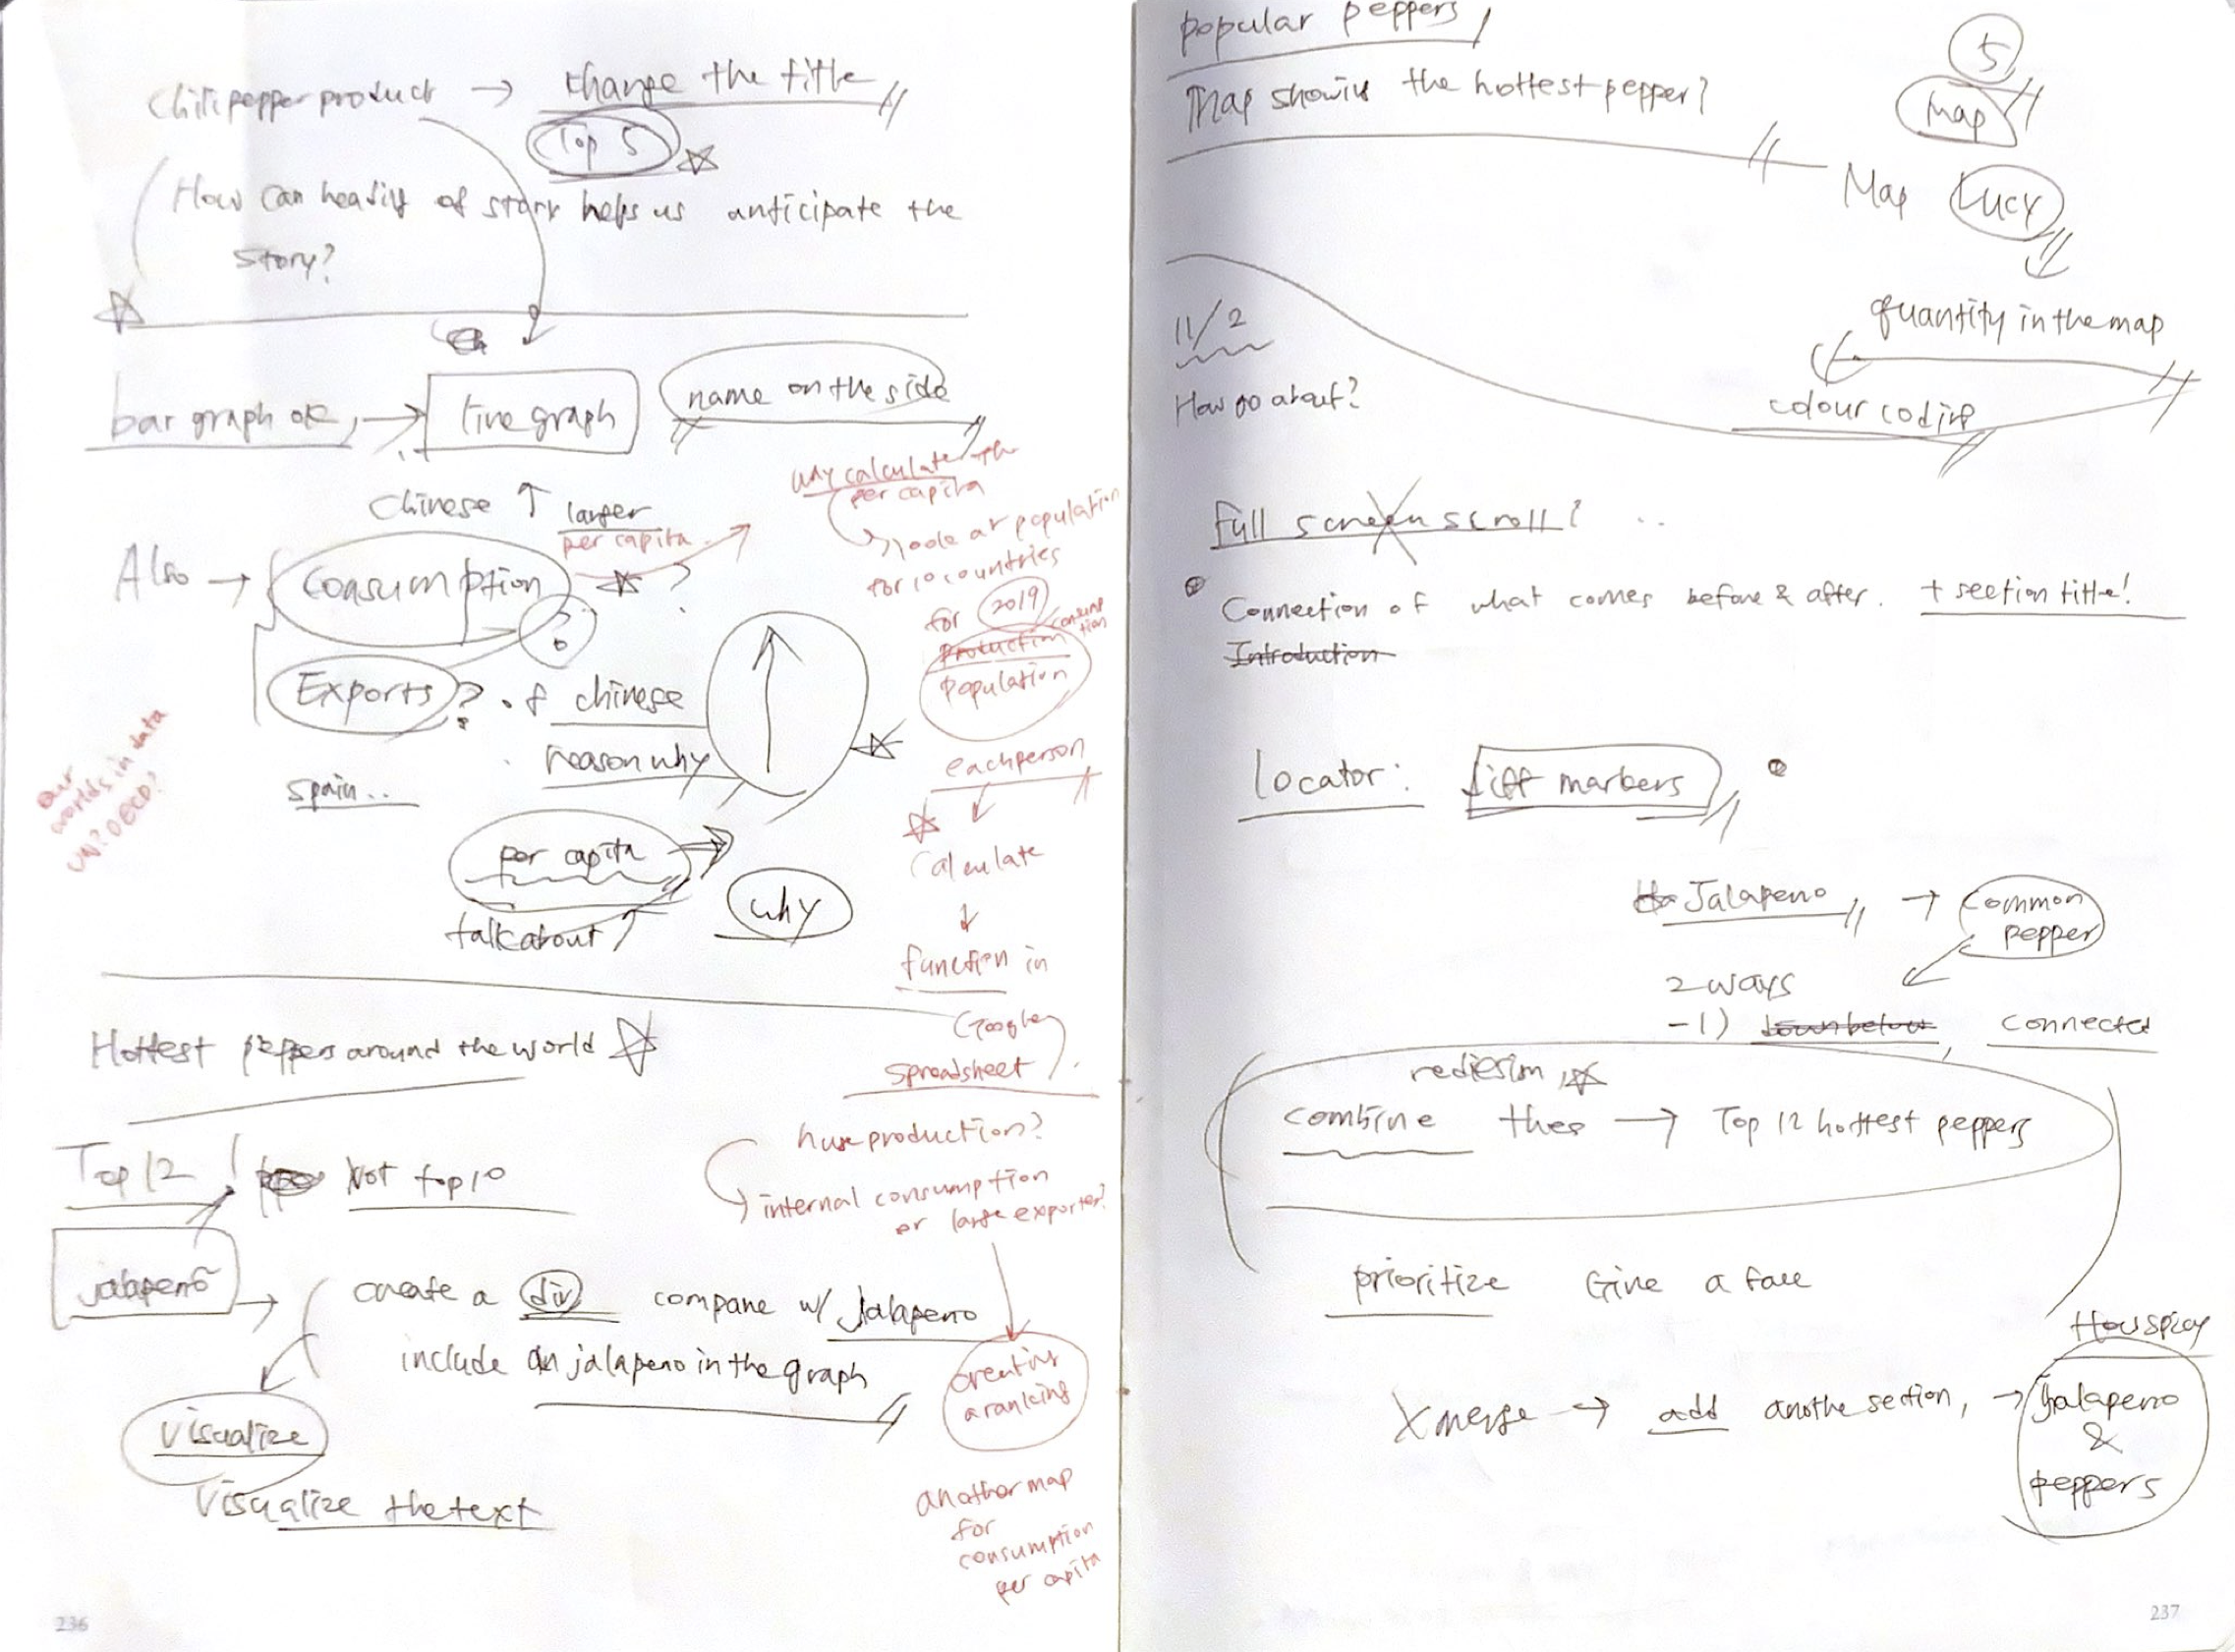 Chili pepper product → change the title
Top 5
How can heading of story helps us anticipate the
story?
bar graph ok, → line graph
name on the side
Chinese ↑ larger
per capita
Also → Consumption ?
?
Exports ? of chinese
reason why
spain..
per capita
talk about
why
why calculate the
per capita
look at population
for 10 countries
for 2019
Production consumption
Population
each person
Calculate
↓
function in
Google
spreadsheet
Our
worlds in data
UN? OECD?
Hottest peppers around the world
Top 12! Not top 10
jalapenõ →
create a div compare w/ Jalapeno
include an jalapeno in the graph
visualize
Visualize the text
huge production?
internal consumption
or large exporter?
creating
a ranking
another map
for
consumption
per capita
236
popular peppers
Map showing the hottest pepper?
5
map
Map Lucy
quantity in the map
colour coding
11/2
How go about?
full screen scroll? ..
Connection of what comes before & after. + section title!
Introduction
locator: diff markers
Jalapeno → common
pepper
2 ways
-1) down below, connected
redesign
combine → Top 12 hottest peppers
prioritize Give a face
How spicy
X merge → add anothe section, → Jalapeno
&
peppers
237